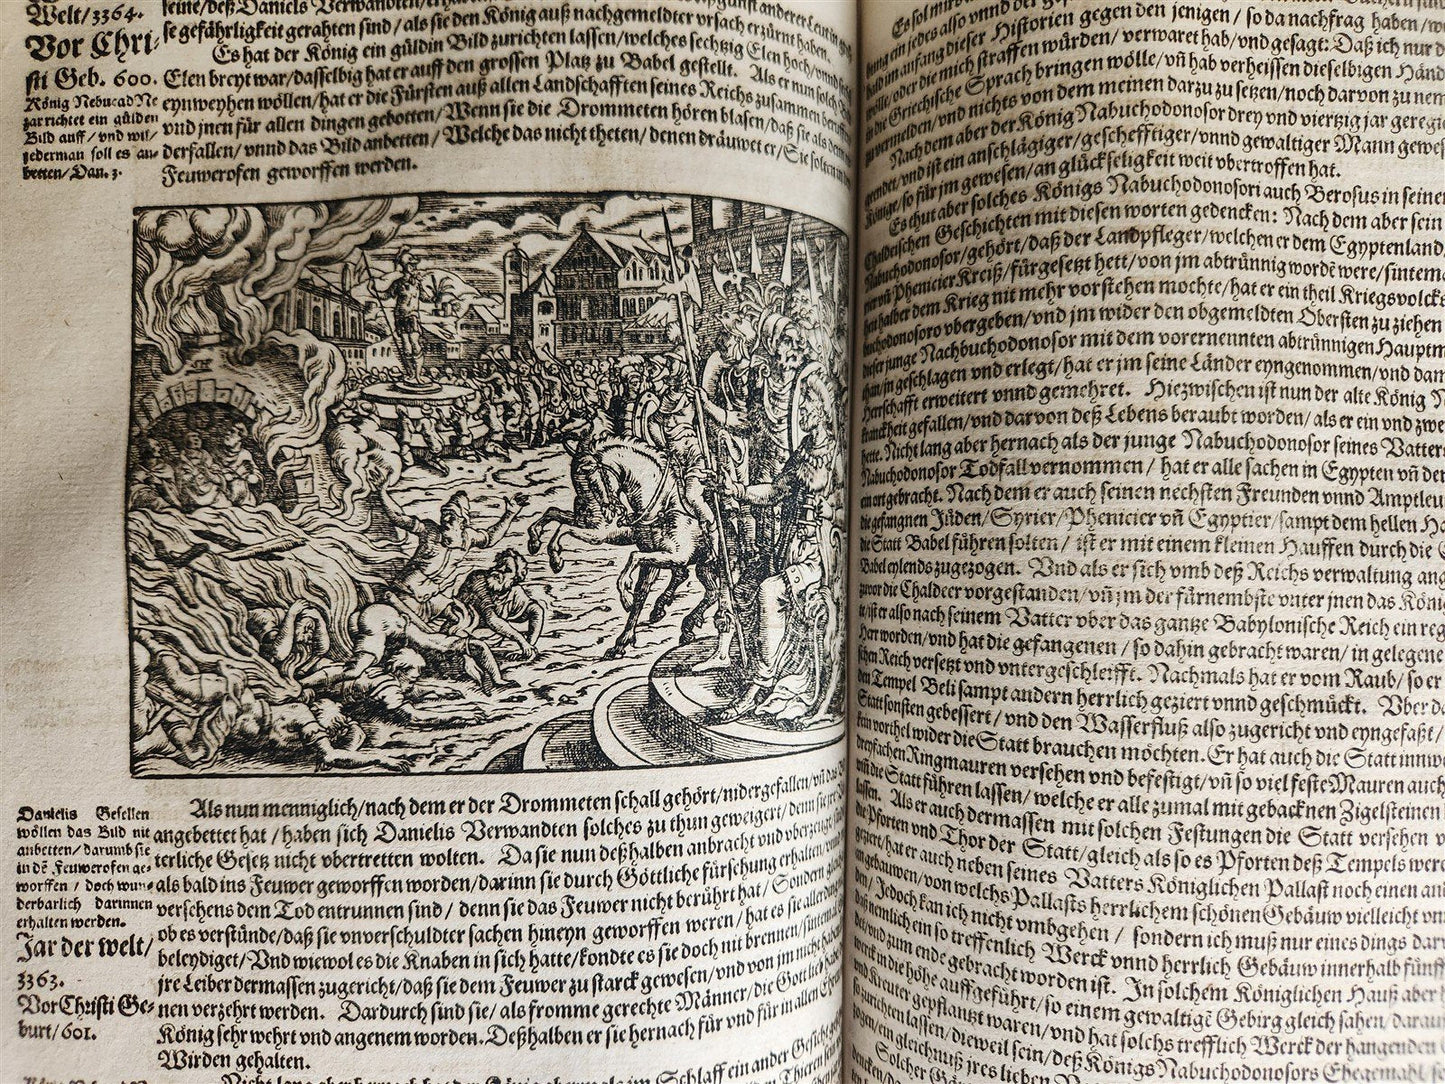 Welt/3364.
Vor Chri-
sti Geb. 600.
König Nebucad Ne
zar richtet ein gülden
Bild auff/ vnd wil/
jederman soll es an-
betten/Dan. 3.
seine/deß Daniels Verwandten/
se gefährligkeit gerahten sind/als sie den König auß nachgemeldter vrsach erzürnt haben.
Es hat der König ein güldin Bild zurichten lassen/welches sechtzig Elen hoch/vnd
Elen breyt war/dasselbig hat er auff den grossen Platz zu Babel gestellt. Als er nun solch
eynweyhen wöllen/hat er die Fürsten auß allen Landschafften seines Reichs zusammen beruffen
vnd jnen für allen dingen gebotten/Wenn sie die Drommeten hören blasen/daß sie als denn
derfallen/vnnd das Bild anbetten/Welche das nicht theten/denen dräuwet er/Sie solten
Feuwerofen geworffen werden.
Danielis Gesellen
wöllen das Bild nit
anbetten/darumb sie
in dē Feuwerofen ge-
worffen / doch wun-
derbarlich darinnen
erhalten werden.
Jar der welt/
3363.
Vor Christi Ge-
burt/601.
Als nun menniglich/nach dem er der Drommeten schall gehört/nidergefallen/vñ das
angebettet hat/haben sich Danielis Verwandten solches zu thun geweigert/denn sie jre
terliche Gesetz nicht vbertretten wolten. Da sie nun deßhalben anbracht vnd vberzeugt
als bald ins Feuwer geworffen worden/darinn sie durch Göttliche fürsehung erhalten/vnd
versehens dem Tod entrunnen sind/denn sie das Feuwer nicht berührt hat/Sondern gleich
ob es verstünde/daß sie vnverschuldter sachen hineyn geworffen weren/hat es sie allerdings
beleydiget/Vnd wiewol es die Knaben in sich hatte/kondte es sie doch nit brennen/sintemal
jre Leiber dermassen zugericht/daß sie dem Feuwer zu starck gewesen/vnd von jm nicht haben
nen verzehrt werden. Dardurch sind sie/als fromme gerechte Männer/die Gott lieb
König sehr wehrt vnd angenem worden. Deßhalben er sie hernach für vnd für in allen Ehren
Wirden gehalten.
Schlaff ein ander Gesicht
hungen ein jedes also vnnd der
bald im anfang dieser Historien gegen den jenigen/so da nachfrag haben/
wölte/oder die mich straffen würden/verwaret hab/vnd gesagt: Daß ich nur
in die Griechische Sprach bringen wölle/vñ hab verheissen dieselbigen
zu vermelden/vnd nichts von dem meinen darzu zu setzen/noch darvon zu
Nach dem aber der König Nabuchodonosor drey vnd viertzig jar
gendet/vnd ist ein anschlägiger/geschefftiger/vnnd gewaltiger Mann
Könige/so für jm gewesen/an glückseligkeit weit vbertroffen hat.
Es thut aber solches Königs Nabuchodonosori auch Berosus in seinen
Chaldeischen Geschichten mit diesen worten gedencken: Nach dem aber sein
Nabuchodonosor/gehört/daß der Landpfleger/welchen er dem Egyptenland/
vnd Phenicier Kreiß/fürgesetzt hett/von jm abtrünnig wordē were/
hen halber dem Krieg nit mehr vorstehen mochte/hat er ein theil Kriegsvolck
buchodonosoro vbergeben/vnd jm wider den obgemeldten Obersten zu ziehen
dieser junge Nachbuchodonosor mit dem vorernennten abtrünnigen
than/jn geschlagen vnd erlegt/hat er jm seine Länder eyngenommen/vnd
Herrschafft erweitert vnnd gemehret. Hiezwischen ist nun der alte König
kranckheit gefallen/vnd darvon deß Lebens beraubt worden/als er ein vnd
hette. Nicht lang aber hernach als der junge Nabuchodonosor seines Vatters
Nabuchodonosor Todfall vernommen/hat er alle sachen in Egypten vñ
ein ort gebracht. Nach dem er auch seinen nechsten Freunden vnnd
die gefangnen Jüden/Syrier/Phenicier vñ Egyptier/sampt dem hellen
die Statt Babel führen solten/ ist er mit einem kleinen Hauffen durch die
Babel eylends zugezogen. Vnd als er sich vmb deß Reichs verwaltung
zuvor die Chaldeer vorgestanden/vñ jm der fürnembste vnter jnen das
ist er also nach seinem Vatter vber das gantze Babylonische Reich ein
Herr worden/vnd hat die gefangenen/so dahin gebracht waren/in
schen Reich versetzt vnd vntergeschleifft. Nachmals hat er vom Raub/so er
den Tempel Beli sampt andern herrlich geziert vnnd geschmückt. Vber
Statt sonsten gebessert/vnd den Wasserfluß also zugericht vnd eyngefaßt/
kein vorthel wider die Statt brauchen möchten. Er hat auch die Statt
dreyfachen Ringmauren versehen vnd befestigt/vñ so viel feste Mauren auch
vmb die Statt führen lassen/welche er alle zumal mit gebacknen Zigelsteinen
lassen. Als er auch dermassen mit solchen Festungen die Statt versehen
die Pforten vnd Thor der Statt/gleich als so es Pforten deß Tempels
geziert/hat er auch neben seines Vatters Königlichen Pallast noch einen
angebauwen/von welchs Pallasts herrlichem schönen Gebäuw vielleicht
den/Jedoch kan ich nicht vmbgehen / sondern ich muß nur eines dings
daß nemlich ein so treffenlich Werck vnnd herrlich Gebäuw innerhalb
gen/vnd zum ende gebracht worden ist. In solchem Königlichen Hauß aber
werck in die höhe auffgeführt/so einem gewaltigē Gebirg gleich sahen/
vnd Kreuter gepflantzt waren/vnd hat solchs trefflich Werck der hangenden
so zurichten lassen/dieweil sein/deß Königs Nabuchodonosors Ehegemahl
zogen/ein gleichnuß jres lieben
Solcher